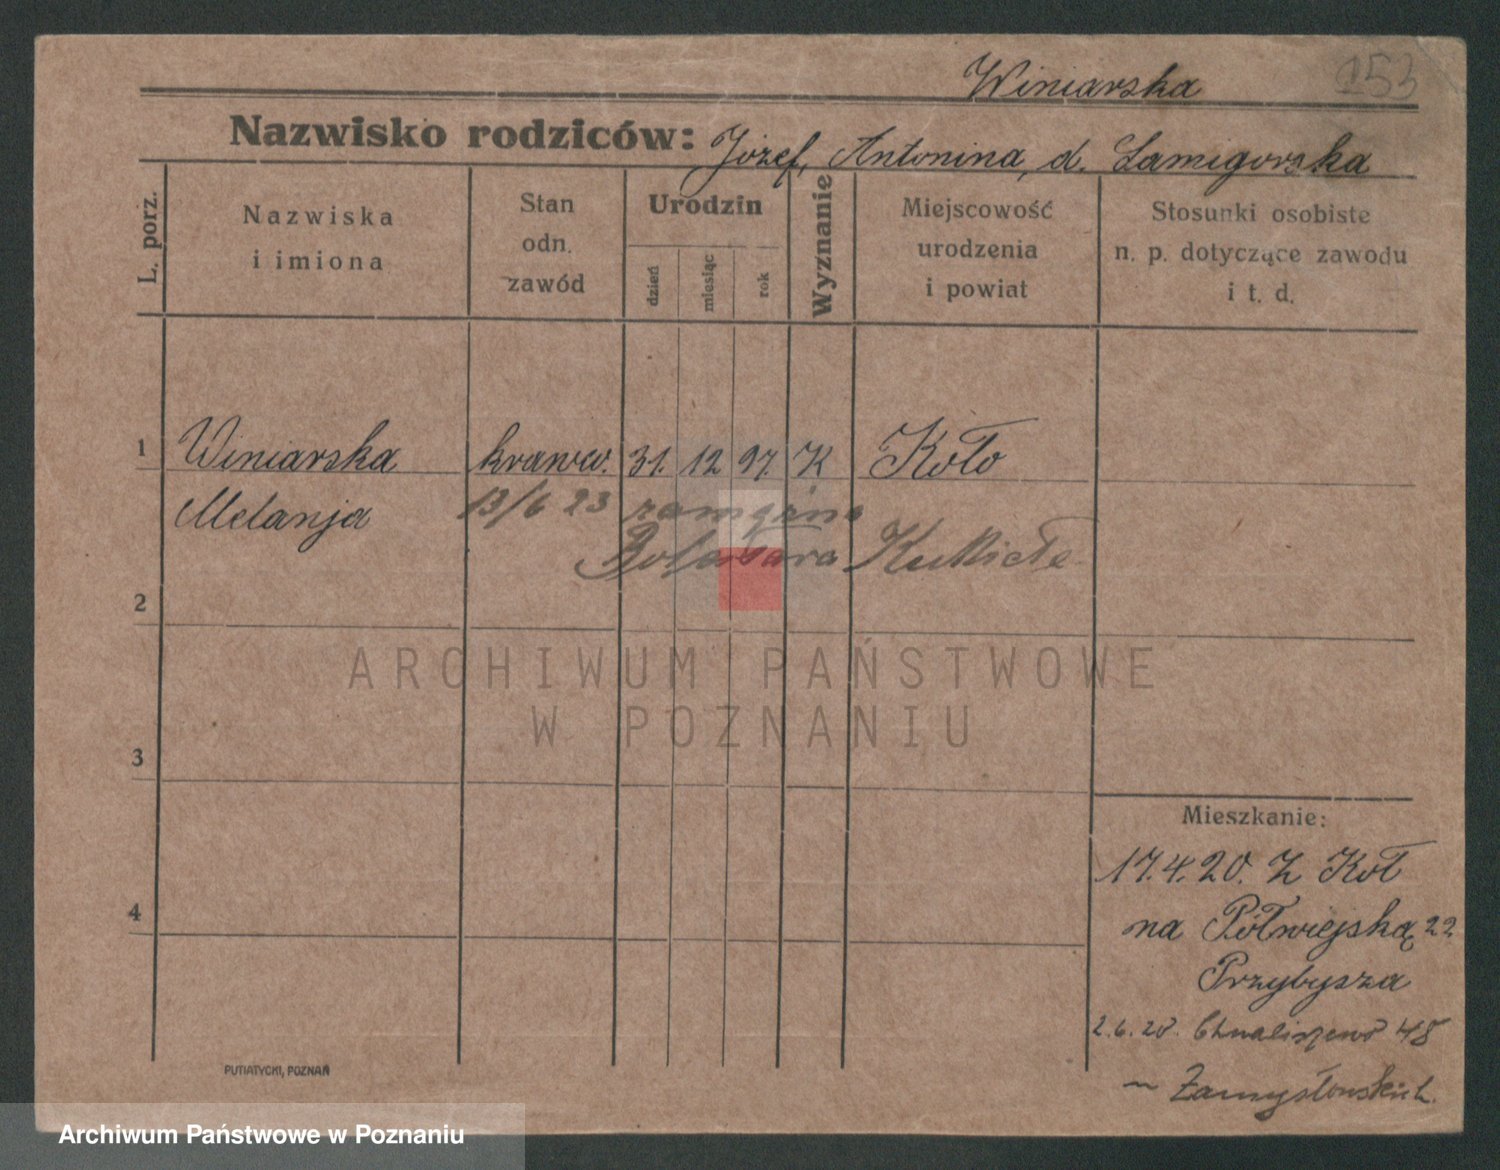 Winiarska
153
Nazwisko rodziców: Józef, Antonina, d. Lamigorska
L. porz.
Nazwiska i imiona
Stan odn. zawód
Urodzin
dzień
miesiąc
rok
Wyznanie
Miejscowość urodzenia i powiat
Stosunki osobiste n. p. dotyczące zawodu i t. d.
1 Winiarska krawcw. 31. 12 97. K Koło
Melanja 13/6 23 zamężna
Kukieła
2
ARCHIWUM PAŃSTWOWE
W POZNANIU
3
Mieszkanie:
17.4.20. Z Koł
4
na Półwiejską 22
Przybysza
2.6.20. Chwaliszewo 48
~ Zamysłowskich.
PUTIATYCKI, POZNAŃ
Archiwum Państwowe w Poznaniu